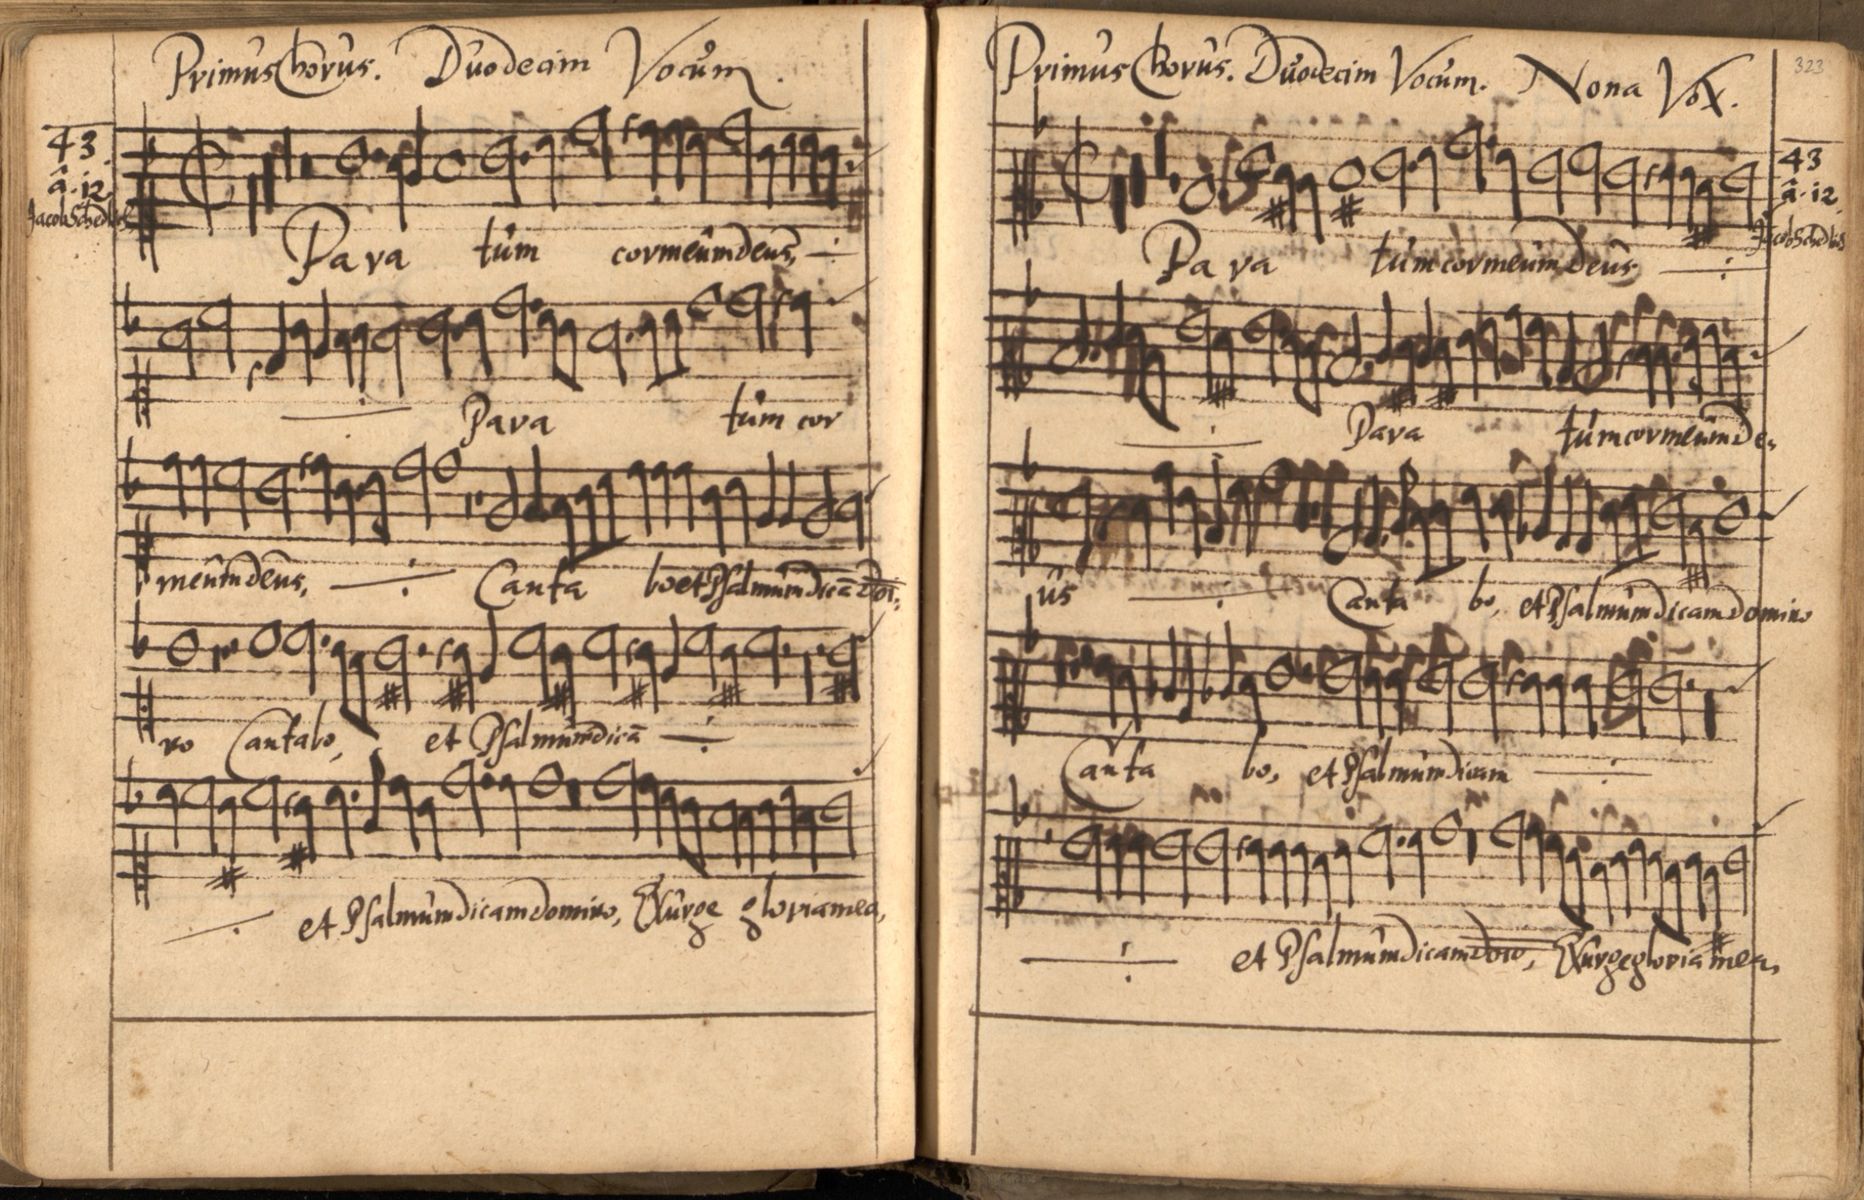 Primus Chorus. Duodecim Vocum.
43.
â. 12.
Jacob Schedlich
Para tûm cor meûm deus,
Para tûm cor
meûm deûs, Canta bo et Psalmûm dicā
no Cantabo, et Psalmum dicā
et Psalmûm dicam domino, Exûrge gloria mea,
Primus Chorus. Duodecim Vocum. Nona Vox.
323
43
â. 12.
Para tûm cor meûm deûs
Para tûm cor meûm de,
ûs Canta bo, et Psalmûm dicam domino
Canta bo, et Psalmûm dicam
et Psalmûm dicam dōno, Exûrge gloria mea,